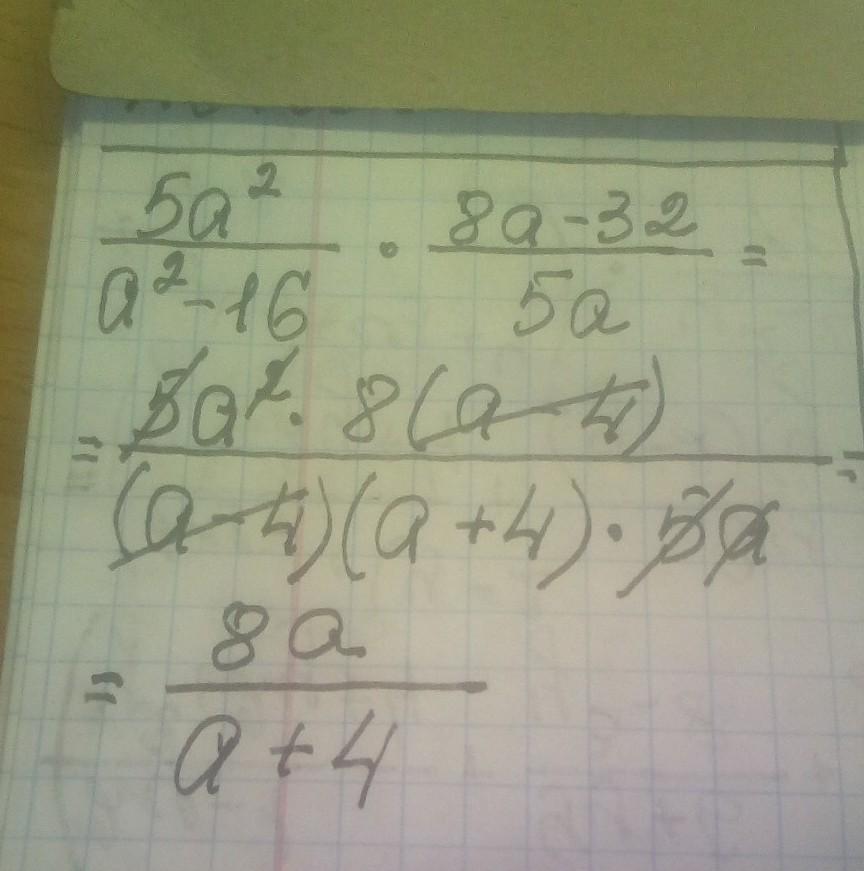 5a² / a² - 16 · 8a - 32 / 5a =
= 5a² · 8(a - 4) / (a - 4)(a + 4) · 5a =
= 8a / a + 4